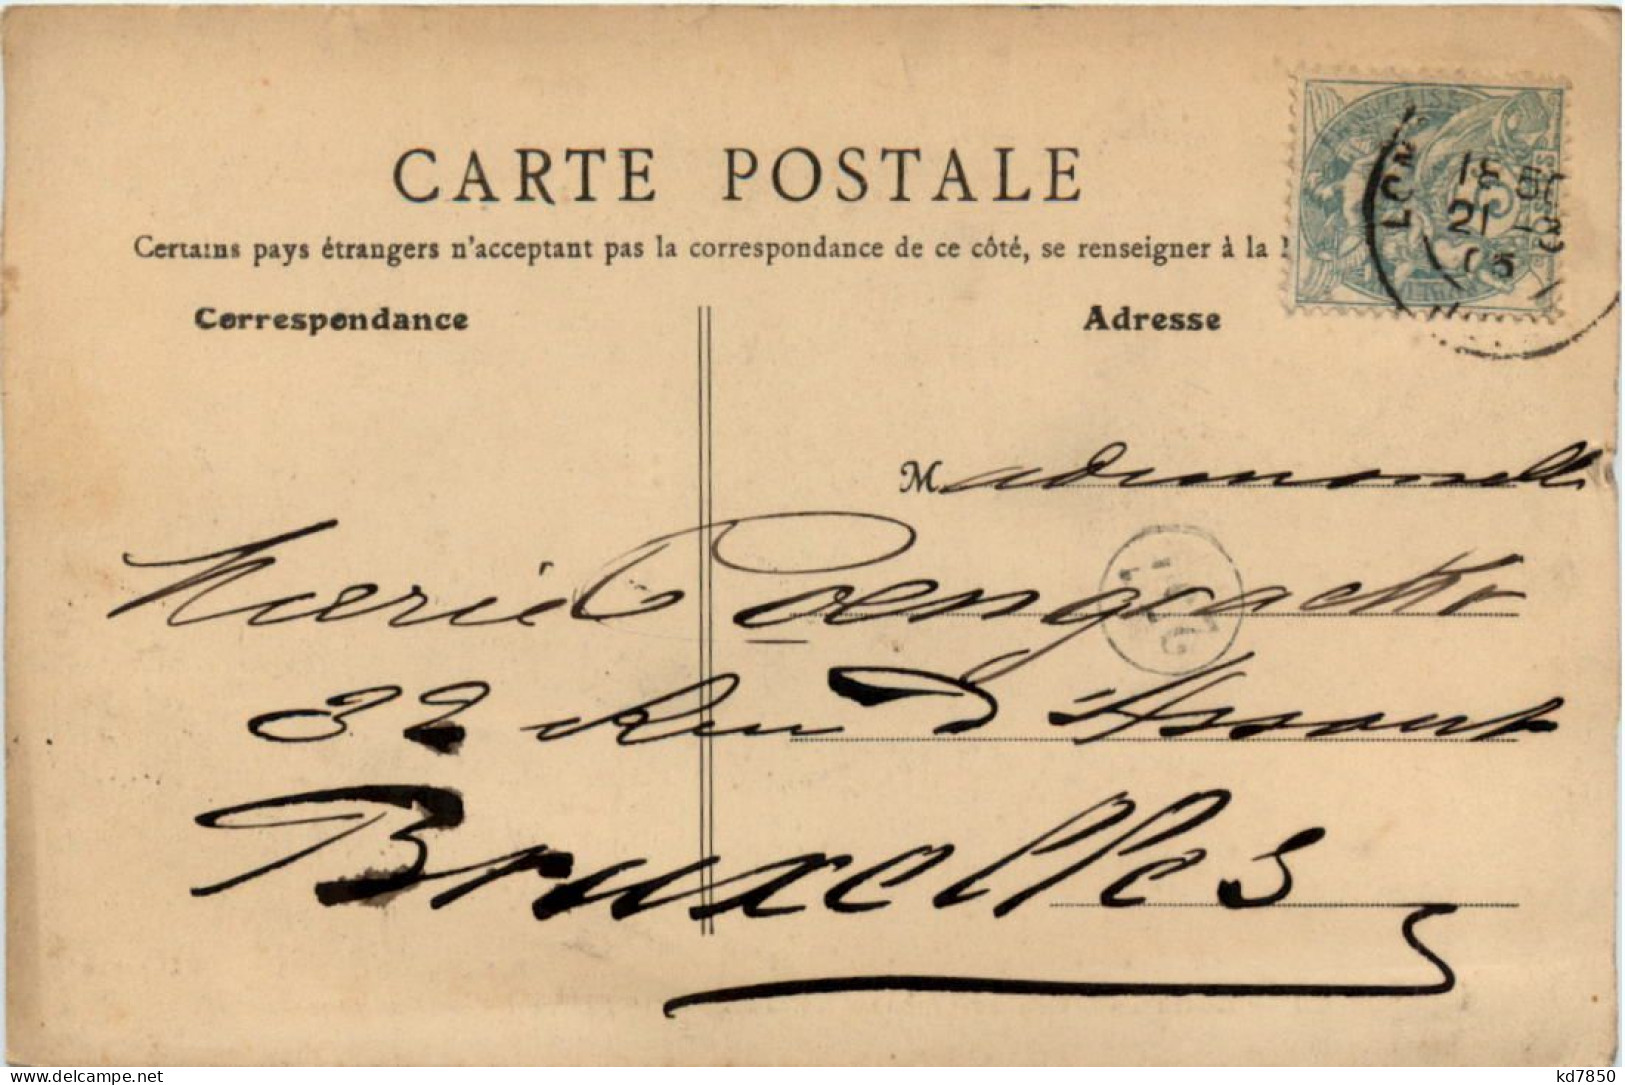 CARTE POSTALE
Certains pays étrangers n'acceptant pas la correspondance de ce côté, se renseigner à la
Correspondance
Adresse
LOM
21
05
Mademoiselle
Marie
32 Rue d'Assaut
Bruxelles
www.delcampe.net
kd7850